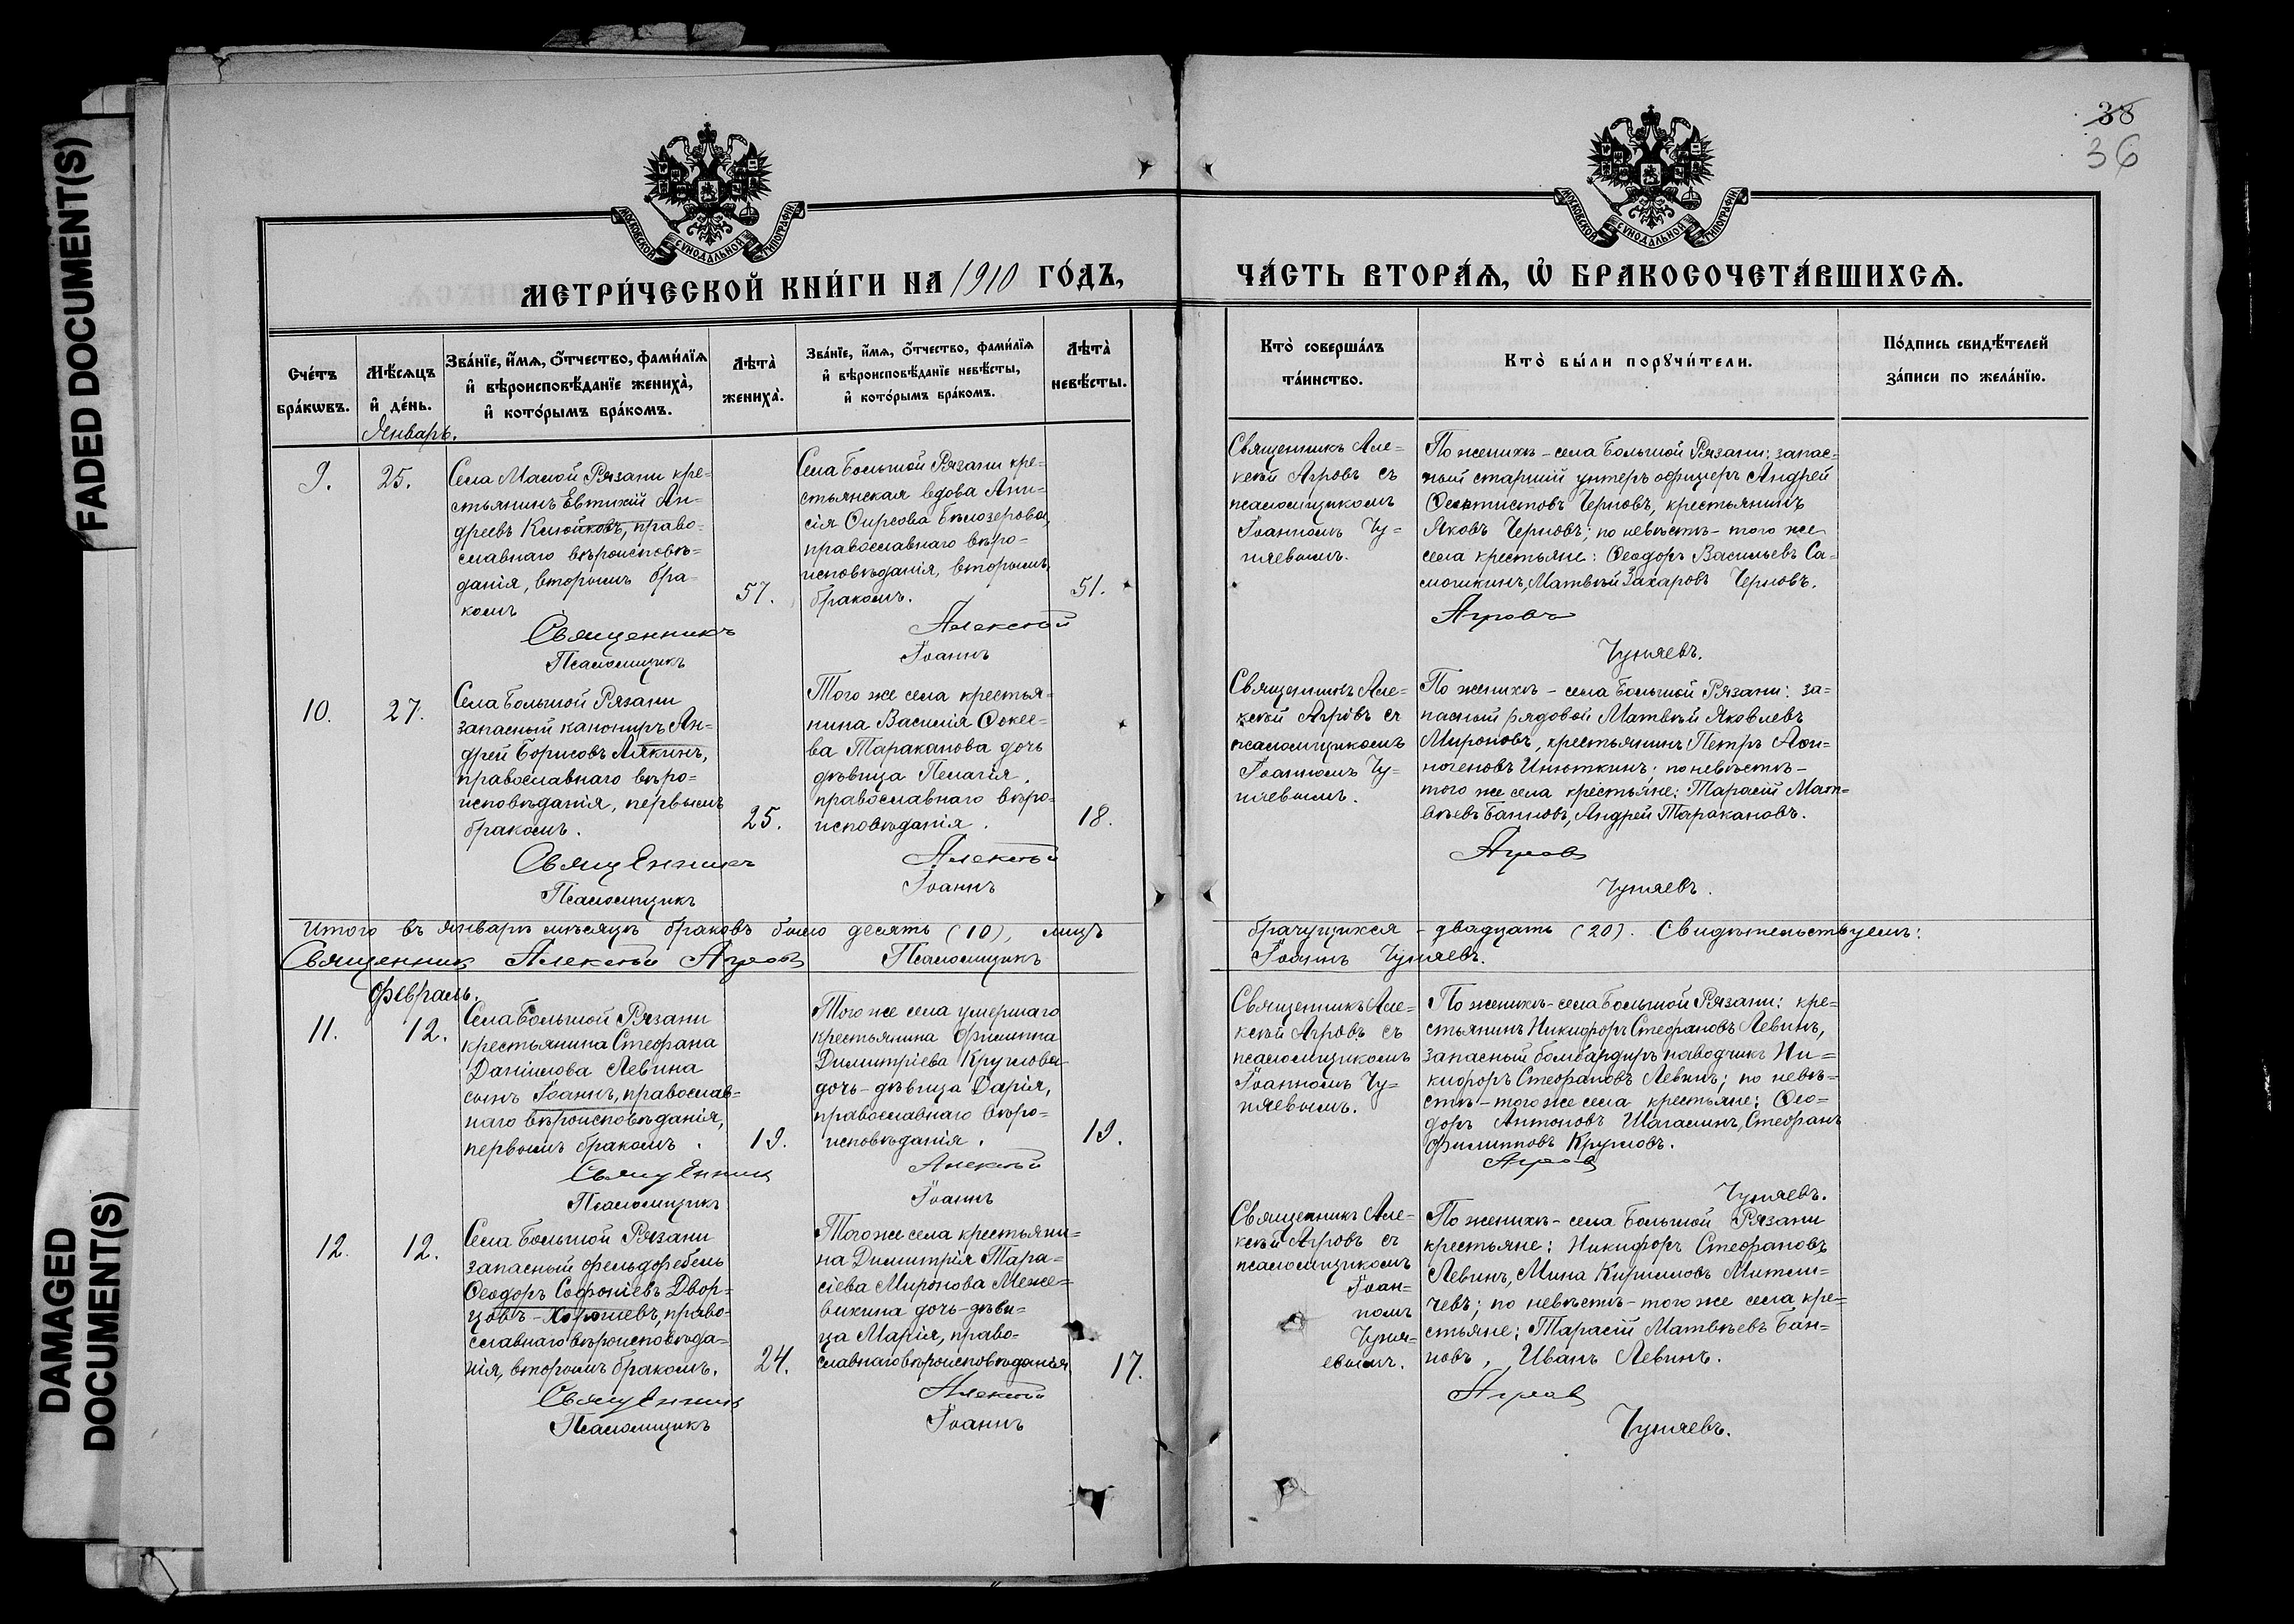 FADED DOCUMENT(S)
DAMAGED
DOCUMENT(S)
38
36
МОСКОВСКОЙ СѴНОДАЛЬНОЙ ТИПОГРАФІИ
МОСКОВСКОЙ СѴНОДАЛЬНОЙ ТИПОГРАФІИ
МЕТРИ́ЧЕСКОЙ КНИ́ГИ НА 1910 ГО́ДЪ,
ЧА́СТЬ ВТОРА́Ѧ, Ѡ҆ БРАКОСОЧЕТА́ВШИХСѦ.
Сче́тъ
бра́кѡвъ.
Мѣ́сѧцъ
и҆ де́нь.
Зва́нїе, и҆́мѧ, ѻ҆́тчество, фами́лїѧ
и҆ вѣроисповѣ́данїе жениха̀,
и҆ кото́рымъ бра́комъ.
Лѣта̀
жениха̀.
Зва́нїе, и҆́мѧ, ѻ҆́тчество, фами́лїѧ
и҆ вѣроисповѣ́данїе невѣ́сты,
и҆ кото́рымъ бра́комъ.
Лѣта̀
невѣ́сты.
Кто̀ соверша́лъ
та́инство.
Кто̀ бы́ли порꙋчи́тели.
По́дпись свидѣ́телей
за́писи по жела́нїю.
Январь.
9.
25.
Села Малой Рязани кре-
стьянинъ Евтихій Ан-
дреевъ Клюйковъ, право-
славнаго вѣроисповѣ-
данія, вторымъ бра-
комъ
57.
Села Большой Рязани кре-
стьянская вдова Ани-
сія Ѳирсова Бѣлозерова,
православнаго вѣро-
исповѣданія, вторымъ
бракомъ.
51.
Священникъ Але-
ксѣй Агровъ съ
псаломщикомъ
Іоанномъ Чу-
пяевымъ.
По женихѣ - села Большой Рязани: запас-
ный старшій унтеръ офицеръ Андрей
Ѳеоктистовъ Черновъ, крестьянинъ
Яковъ Черновъ; по невѣстѣ - того же
села крестьяне: Ѳеодоръ Васильевъ Са-
мошкинъ, Матвѣй Захаровъ Черновъ.
Священникъ Алексѣй Агровъ
Псаломщикъ Іоаннъ Чупяевъ.
10.
27.
Села Большой Рязани
запасный канониръ Ан-
дрей Борисовъ Аляkинъ,
православнаго вѣро-
исповѣданія, первымъ
бракомъ.
25.
Того же села крестья-
нина Василія Ѳокее-
ва Тараканова дочь
дѣвица Пелагія,
православнаго вѣро-
исповѣданія.
18.
Священникъ Але-
ксѣй Агровъ съ
псаломщикомъ
Іоанномъ Чу-
пяевымъ.
По женихѣ - села Большой Рязани: за-
пасный рядовой Матвѣй Яковлевъ
Мироновъ, крестьянинъ Петръ Аѳи-
ногеновъ Инюткинъ; по невѣстѣ -
того же села крестьяне: Тарасій Мат-
вѣевъ Банновъ, Андрей Таракановъ.
Священникъ Алексѣй Агровъ
Псаломщикъ Іоаннъ Чупяевъ.
Итого въ январѣ мѣсяцѣ браковъ было десять (10), лицъ брачущихся - двадцать (20). Свидѣтельствуемъ:
Священникъ Алексѣй Агровъ Псаломщикъ Іоаннъ Чупяевъ.
Февраль.
11.
12.
Села Большой Рязани
крестьянина Стефана
Даніилова Левина
сынъ Іоаннъ, православ-
наго вѣроисповѣданія,
первымъ бракомъ.
19.
Того же села умершаго
крестьянина Филиппа
Димитріева Круглова
дочь - дѣвица Дарія,
православнаго вѣро-
исповѣданія.
19.
Священникъ Але-
ксѣй Агровъ съ
псаломщикомъ
Іоанномъ Чу-
пяевымъ.
По женихѣ - села Большой Рязани: кре-
стьянинъ Никифоръ Стефановъ Левинъ,
запасный бомбардиръ наводчикъ Ни-
кифоръ Стефановъ Левинъ; по невѣ-
стѣ - того же села крестьяне: Ѳео-
доръ Антоновъ Шагалинъ, Стефанъ
Филипповъ Кругловъ.
Священникъ Алексѣй Агровъ
Псаломщикъ Іоаннъ Чупяевъ.
12.
12.
Села Большой Рязани
запасный фельдфебель
Ѳеодоръ Софоніевъ Двор-
цовъ - Хорошевъ, право-
славнаго вѣроисповѣда-
нія, вторымъ бракомъ.
24.
Того же села крестьяни-
на Димитрія Тара-
сіева Миронова Меже-
викина дочь - дѣви-
ца Марія, право-
славнаго вѣроисповѣданія.
17.
Священникъ Але-
ксѣй Агровъ съ
псаломщикомъ
Іоан-
номъ
Чупя-
евымъ.
По женихѣ - села Большой Рязани
крестьяне: Никифоръ Стефановъ
Левинъ, Мина Кирилловъ Митяи-
чевъ; по невѣстѣ - того же села кре-
стьяне: Тарасій Матвѣевъ Бан-
новъ, Иванъ Левинъ.
Священникъ Алексѣй Агровъ
Псаломщикъ Іоаннъ Чупяевъ.